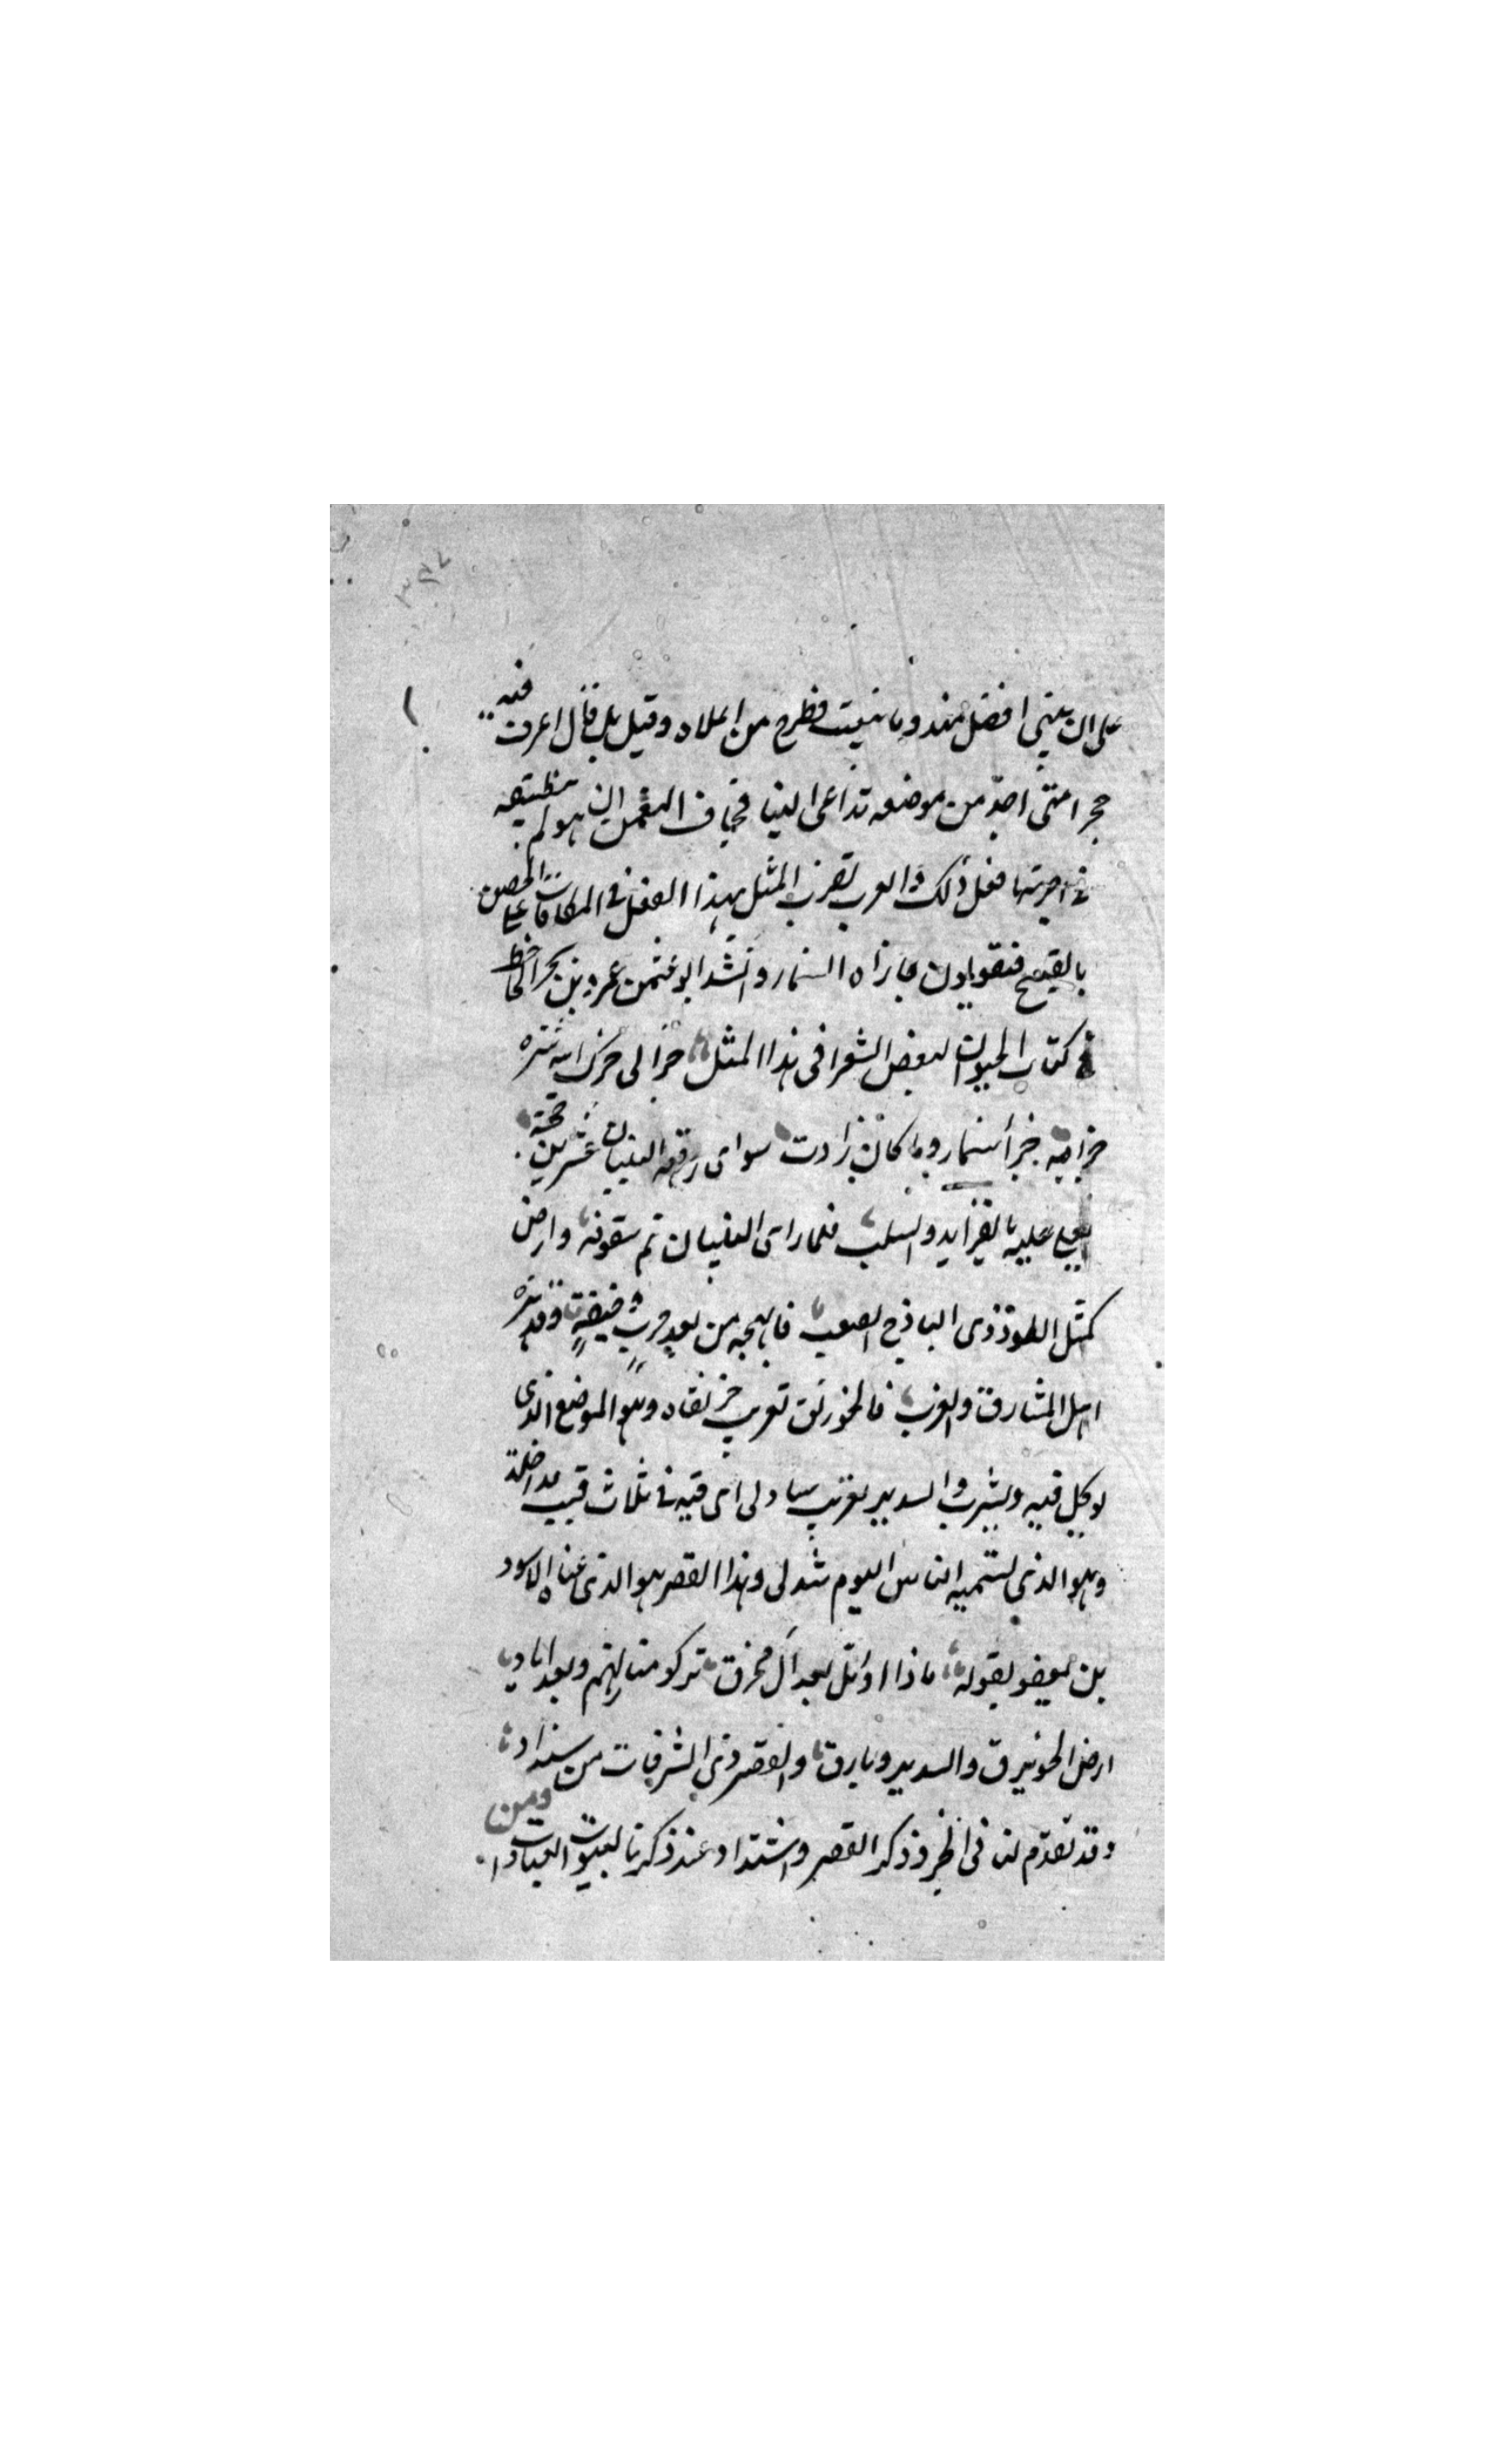 على ان يبنى افضل منه وما بنيت فطرح من اعلاه وقيل بل قال اعرف فيه
حجرا متى اجذ من موضعه تداعى البنيا فخاف النعمن ان هو لم
فى اجرتها فعل ذلك والعرب تضرب المثل بهذا الفعل فى المكافات على
بالقبيح فيقولون جازاه السنمار وانشد ابو عثمن عمرو بن بحر الجاحظ
فى كتاب الحيوان لبعض الشعرا فى هذا المثل جزا لى جزاه الله شره
جزايه جزأ سنمار وما كان زادت سواى رقعه البنيان عشرين حجة
يعلى عليه بالقرايد والسلب فلما راى البنيان تم سقوفه وارض
كمثل الطود ذى الباذخ الصعب فابهجه من بعد وقد
اهل المشارق والغرب فالخورنق تعرب خرنقاه وهو الموضع الذى
لوكل فيه ويشرب والسدير تعريب سادلى اى قبه فى ثلاث قبب مداخلة
وهو الذى تسميه الناس اليوم شدلى وهذا القصر هو الذى عناه الاسود
بن يعفو بقوله ماذا اوتل بعد آل محرق تركو منازلهم وبعد اياد
ارض الخورنق والسدير وبارق والقصر ذى الشرفات من سنداد
وقد تقدم لنا فى ذكر القصر عند ذكرنا لبيوت العبادات ومن